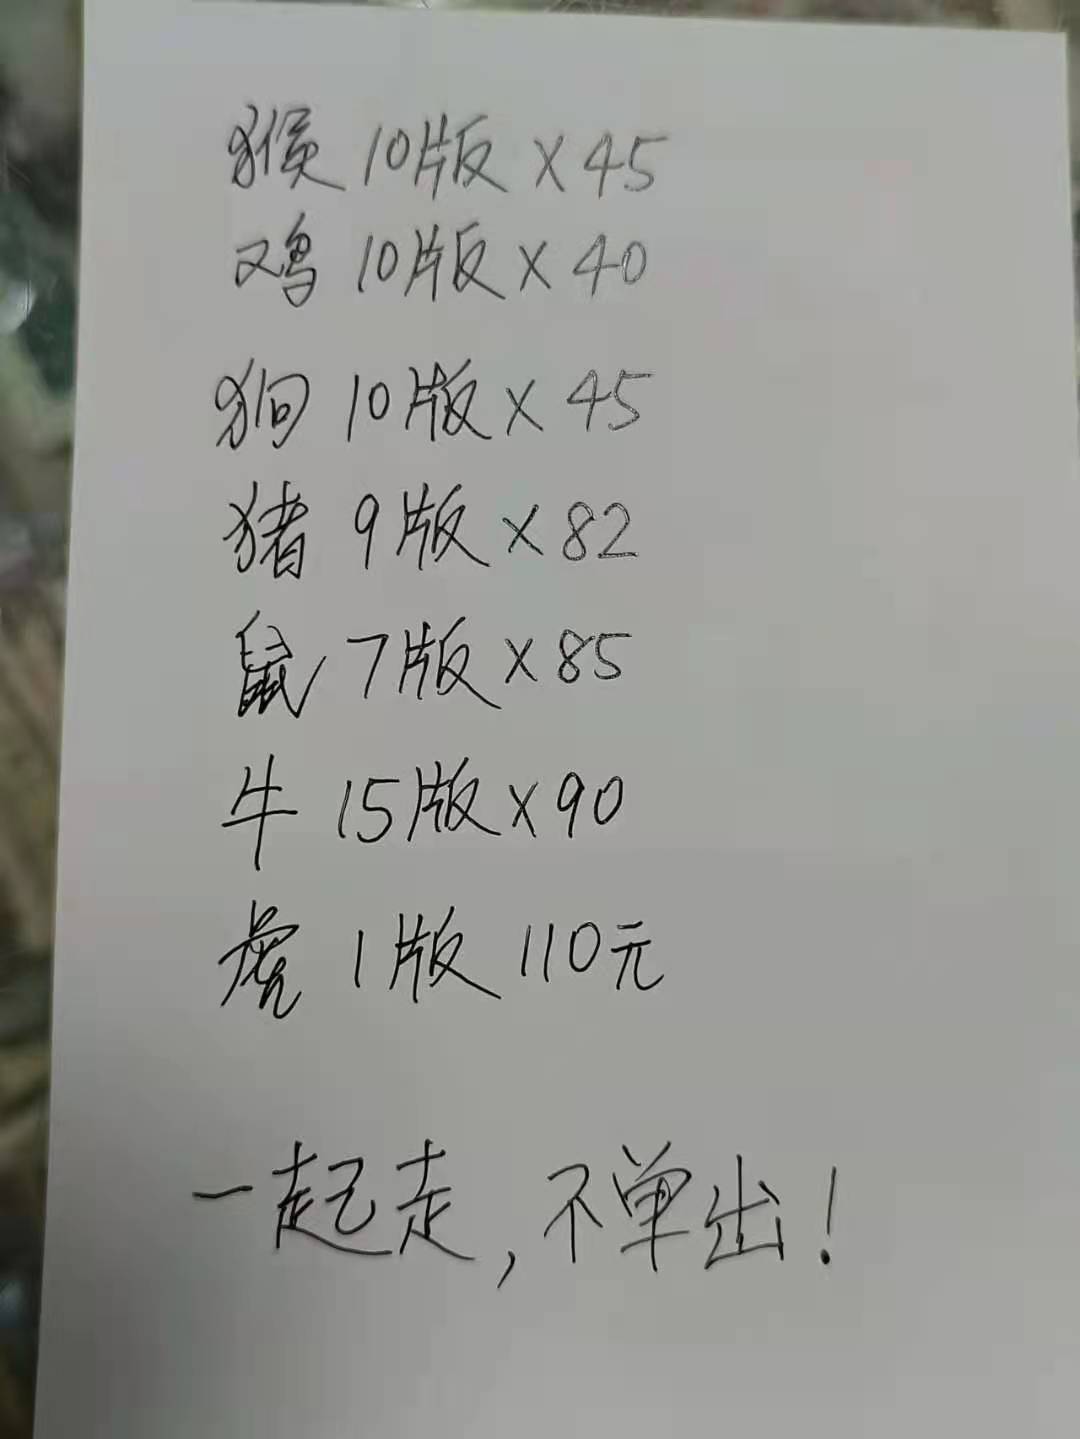 猴 10版 X 45
鸡 10版 X 40
狗 10版 X 45
猪 9版 X 82
鼠 7版 X 85
牛 15版 X 90
虎 1版 110元
一起走,不单出!